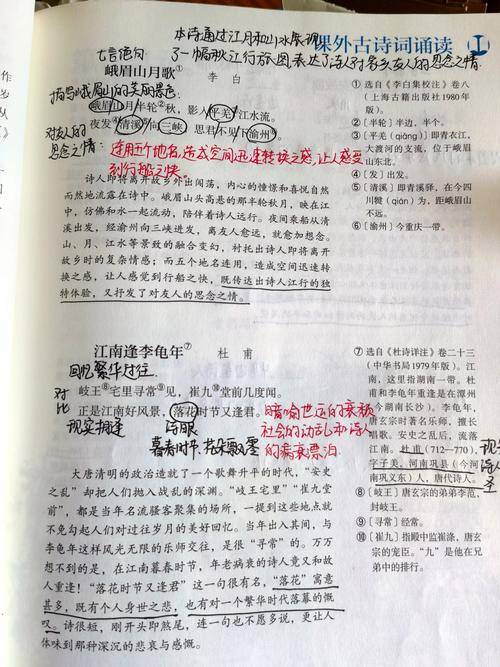 本诗通过江月和山水展现
课外古诗词诵读
七言绝句
了一幅秋江行旅图,表达了诗人对名乡友人的思念之情。
峨眉山月歌①
李 白
指写峨眉山的美丽景色
峨眉山月半轮②秋,影入平羌③江水流。
夜发④清溪⑤向三峡,思君不见下渝州⑥。
对友人的
思念之情
连用五个地名,造成空间迅速转换之感,让人感受
到行船之快。
诗人即将离开故乡外出闯荡,内心的憧憬和喜悦自然
而然地流露在诗中。峨眉山头高悬的那半轮秋月,映在江
中,仿佛和水一起流动,陪伴着诗人远行。夜间乘船从清
溪出发,经渝州向三峡进发,离友人愈远,就愈加想念。
山、月、江水等景致的融合变幻,衬托出诗人即将离开
故乡时的复杂情感;而五个地名连用,造成空间迅速转
换之感,让人感觉到行船之快,既传达出诗人江行的独
特体验,又抒发了对友人的思念之情。
① 选自《李白集校注》卷八
(上海古籍出版社1980年
版)。
②〔半轮〕半边,半个。
③〔平羌(qiāng)〕即青衣江,
大渡河的支流,位于峨眉
山东北。
④〔发〕出发。
⑤〔清溪〕即青溪驿,在今四
川犍(qián)为,距峨眉山
不远。
⑥〔渝州〕今重庆一带。
江南逢李龟年⑦
杜 甫
回忆繁华过往
岐王⑧宅里寻常⑨见,崔九⑩堂前几度闻。
对比
正是江南好风景,落花时节又逢君。
现实相逢
诗眼
暮春时节
暗喻世运的衰颓
社会的动乱和诗人
的病衰漂泊
大唐清明的政治造就了一个歌舞升平的时代,“安史
之乱”却把人们抛入战乱的深渊。“岐王宅里”“崔九堂
前”,都是当年名流骚客聚集的场所,一提到这些地点就
不免勾起人们对过往岁月的美好回忆。当年出入其间,与
李龟年这样风光无限的乐师交往,是很“寻常”的。万万
想不到的是,在江南暮春时节,年老病衰的诗人竟又和故
人重逢!“落花时节又逢君”这一句很有名,“落花”寓意
甚多,既有个人身世之悲,也有对一个繁华时代落幕的慨
叹。诗很短,刚开头即煞尾,连一句也不愿多说,更让人
体味到那种深沉的悲哀与感慨。
⑦ 选自《杜诗详注》卷二十三
(中华书局1979年版)。江
南,这里指湖南一带。杜
甫和李龟年重逢是在潭州
(今湖南长沙)。李龟年,
唐玄宗时著名乐师,擅长
唱歌。安史之乱后,流落
江南。杜甫(712—770),
字子美,河南巩县(今河
南巩义东)人,唐代诗人。
⑧〔岐王〕唐玄宗的弟弟李范,
封岐王。
⑨〔寻常〕经常。
⑩〔崔九〕指殿中监崔涤,唐
玄宗的宠臣。“九”是他在兄
弟中的排行。